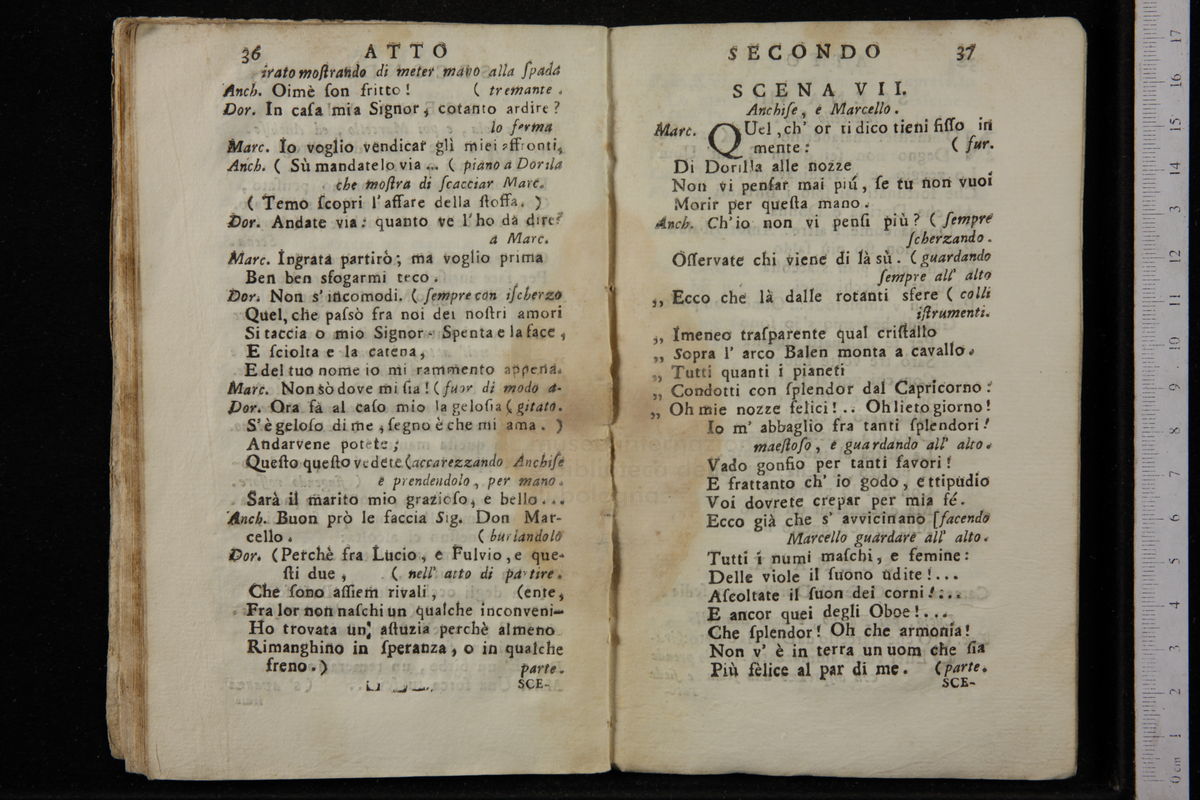 36 ATTO
irato moſtrando di meter mano alla ſpada
Anch. Oimè ſon fritto! ( tremante.
Dor. In caſa mia Signor, cotanto ardire?
lo ferma
Marc. Io voglio vendicar gli miei affronti,
Anch. ( Sù mandatelo via ... ( piano a Dorila
che moſtra di ſcacciar Marc.
( Temo ſcopri l'affare della ſtoffa. )
Dor. Andate via: quanto ve l'ho da dire?
a Marc.
Marc. Ingrata partirò; ma voglio prima
Ben ben sfogarmi teco.
Dor. Non s'incomodi. ( ſempre con iſcherzo
Quel, che paſsò fra noi dei noſtri amori
Si taccia o mio Signor- Spenta e la face,
E ſciolta e la catena,
E del tuo nome io mi rammento appena.
Marc. Non sò dove mi ſia! (fuor di modo a-
Dor. Ora fà al caſo mio la geloſia ( gitato.
S'è geloſo di me, ſegno è che mi ama. )
Andarvene potete;
Queſto queſto vedete (accarezzando Anchiſe
e prendendolo, per mano.
Sarà il marito mio grazioſo, e bello...
Anch. Buon prò le faccia Sig. Don Mar-
cello. ( burlandolo
Dor. (Perchè fra Lucio, e Fulvio, e que-
ſti due, ( nell' atto di partire.
Che ſono aſſiem rivali, (ente,
Fra lor non naſchi un qualche inconveni-
Ho trovata un' aſtuzia perchè almeno
Rimanghino in ſperanza, o in qualche
freno.) parte.
SCE-
SECONDO 37
SCENA VII.
Anchiſe, e Marcello.
Marc. QUel, ch' or ti dico tieni fiſſo in
mente: ( fur.
Di Dorilla alle nozze
Non vi penſar mai piú, ſe tu non vuoi
Morir per queſta mano.
Anch. Ch'io non vi penſi più? ( ſempre
ſcherzando.
Oſſervate chi viene di là sù. (guardando
ſempre all' alto
,, Ecco che là dalle rotanti sfere ( colli
iſtrumenti.
,, Imeneo traſparente qual criſtallo
,, Sopra l' arco Balen monta a cavallo.
,, Tutti quanti i pianeti
,, Condotti con ſplendor dal Capricorno:
,, Oh mie nozze felici!.. Oh lieto giorno!
Io m' abbaglio fra tanti ſplendori!
maeſtoſo, e guardando all' alto.
Vado gonfio per tanti favori!
E frattanto ch' io godo, e ttipudio
Voi dovrete crepar per mia fé.
Ecco già che s' avvicinano [facendo
Marcello guardare all' alto.
Tutti i numi maſchi, e femine:
Delle viole il ſuono udite!...
Aſcoltate il ſuon dei corni!...
E ancor quei degli Oboe!...
Che ſplendor! Oh che armonia!
Non v' è in terra un uom che ſia
Più fèlice al par di me. (parte.
SCE-
0 cm 1 2 3 4 5 6 7 8 9 10 11 12 13 14 15 16 17